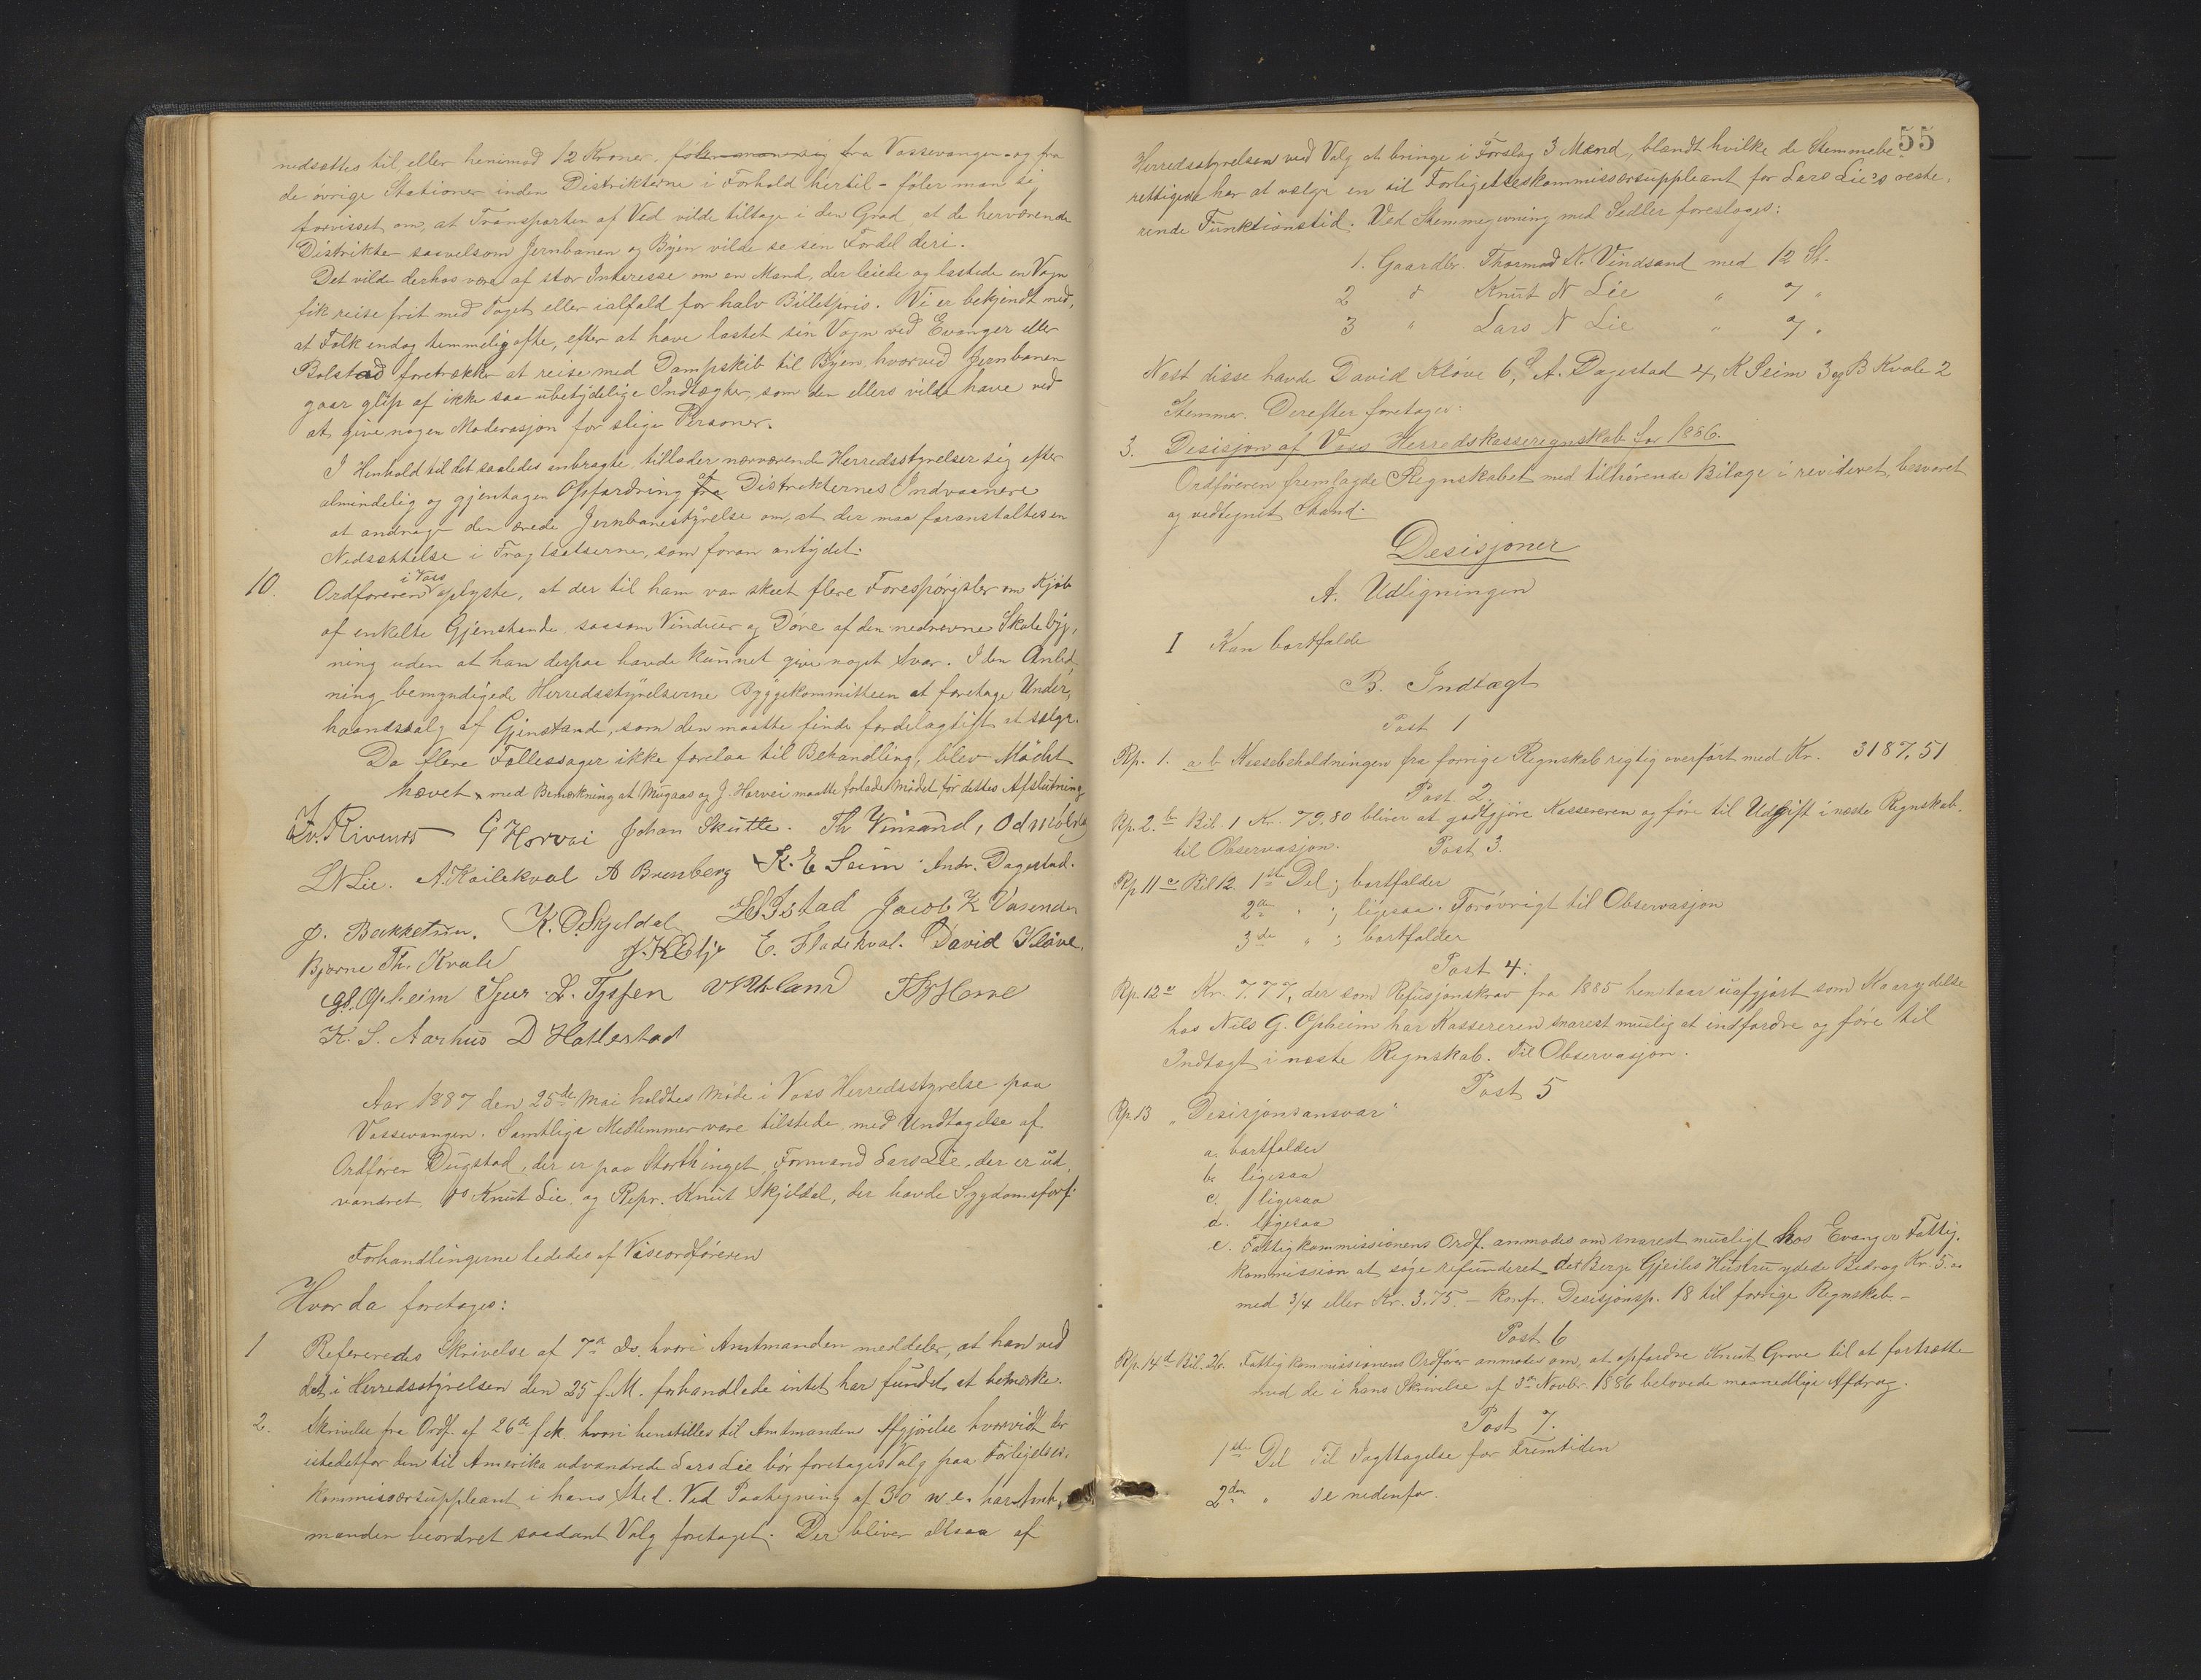 nedsættes til, eller henimod 12 Kroner, fra Vossevangen og fra
de övrige Stationer inden Distrikterne i Forhold hertil – föler man sig
forvisset om, at Transporten af Ved vilde tiltage i den Grad, at de herværende
Distrikter saavelsom Jernbanen og Byen vilde se sen Fordel deri.
Det vilde derhos være af stor Interesse om en Mand, der leiede og lastede en Vogn
fik reise frit med Toget eller ialfald for halv Billetpris. Vi er bekjendt med,
at Folk endog temmelig ofte, efter at have lastet sin Vogn ved Evanger eller
Bolstad foretrækker at reise med Dampskib til Byen, hvorved Jernbanen
gaar glip af ikke saa ubetydelige Indtægter, som den ellers vilde have ved
at give nogen Moderasjon for slige Personer.
I Henhold til det saaledes anbragte, tillader nærværende Herredsstyrelser sig efter
almindelig og gjentagen Opfordring af Distrikternes Indvaanere
at andrage den ærede Jernbanestyrelse om, at der maa foranstaltes en
Nedsættelse i Fragtsatserne, som foran antydet.
10. Ordföreren i Voss oplyste, at der til ham var skeet flere Forespörgsler om Kjöb
af enkelte Gjenstande, saasom Vinduer og Döre af den nedrevne Skolebyg,
ning uden at han derpaa havde kunnet give noget Svar. I den Anled,
ning bemyndigede Herredsstyrelserne Byggekommitteen at foretage Under,
haandssalg af Gjenstande, som den maatte finde fordelagtigt at sælge.
Da flere Fællessager ikke forelaa til Behandling, blev Mödet
hævet med Bemærkning at Mugaas og J. Horvei maatte forlade Mödet för dettes Afslutning
G Horvei Johan Skutle. Th Vinsand, Od Mölster
L N Lie. A. Kailekval A Brunborg K. E Seim Andr. Dagestad.
J. Bakketun. K. O. Skjeldal L S Istad Jacob K Vasenden
Bjorne Th. Kvale E. Fladekval. David Klöve.
Opheim Sjur L. Tyssen
K. S. Aarhus D Hallestad
Aar 1887 den 25de Mai holdtes Möde i Voss Herredsstyrelse paa
Vossevangen. Samtlige Medlemmer vare tilstede, med Undtagelse af
Ordförer Dugstad, der er paa Storthinget, Formand Lars Lie, der er ud,
vandret, do Knut Lie og Repr. Knut Skjeldal, der havde Sygdomsforf.
Forhandlingerne lededes af Viseordföreren
Hvor da foretoges:
1 Refereredes Skrivelse af 7de ds. hvori Amtmanden meddeler, at han ved
det i Herredsstyrelsen den 25 f. M. forhandlede intet har fundet at bemærke.
2. Skrivelse fra Ordf. af 26de f. M. hvori henstilles til Amtmandens Afgjörelse hvorvidt der
istedetfor den til Amerika udvandrede Lars Lie bör foretages Valg paa Forligelses,
kommissærsuppleant i hans Sted. Ved Paategning af 30 n. e. har Amt,
manden beordret saadant Valg foretaget. Der bliver altsaa af
55
Herredsstyrelsen ved Valg at bringe i Forslag 3 Mænd, blandt hvilke de Stemmebe,
rettigede har at vælge en til Forligelseskommissærsuppleant for Lars Lie's reste,
rende Funktionstid. Ved Stemmegivning med Sedler foresloges:
1. Gaardbr. Thormod N. Vindsand med 12 St.
2 do Knut N Lie " 7 "
3 " Lars N Lie " 7 "
Næst disse havde David Klöve 6, A. Dagestad 4, K Seim 3 og B Kvale 2
Stemmer. Derefter foretoges:
3. Desisjon af Voss Herredskasseregnskab for 1886.
Ordföreren fremlagde Regnskabet med tilhörende Bilage i revideret, besvaret
og vedtegnet Stand.
Desisjoner
A. Udligningen
I Kan bortfalde
B. Indtægt
Post 1
Rp. 1. a b Kassebeholdningen fra forrige Regnskab rigtig overfört med Kr. 3187,51
Post 2
Rp. 2. b Bil. 1 Kr. 79.80 bliver at godtgjöre Kassereren og före til Udgift i næste Regnskab.
til Observasjon.
Post 3.
Rp 11 c Bil 12. 1ste Del; bortfalder
2den " ; ligesaa. Forövrigt til Observasjon
3de " ; bortfalder
Post 4.
Rp. 12 a Kr. 7.77, der som Refusjonskrav fra 1885 henstaar uafgjort som Kaarydelse
hos Nils G. Opheim har Kassereren snarest mulig at indfordre og före til
Indtægt i næste Regnskab. Til Observasjon.
Post 5
Rp. 13 "Desisjonsansvar"
a. bortfalder
b. ligesaa
c. ligesaa
d. ligesaa
e. Fattigkommissionens Ordf. anmodes om snarest muligt hos Evanger Fattig,
kommission at söge refunderet det Berge Gjeilis Hustru ydede Bidrag Kr. 5.00
med 3/4 eller Kr. 3.75. – konfr. Desisjonsp. 18 til forrige Regnskab –
Post 6
Rp. 14 d Bil. 26. Fattigkommissionens Ordförer anmodes om, at opfordre Knut Grove til at fortsætte
med de i hans Skrivelse af 3de Novbr. 1886 belovede maanedlige Afdrag.
Post 7.
1ste Del Til Iagttagelse for Fremtiden
2den " se nedenfor.